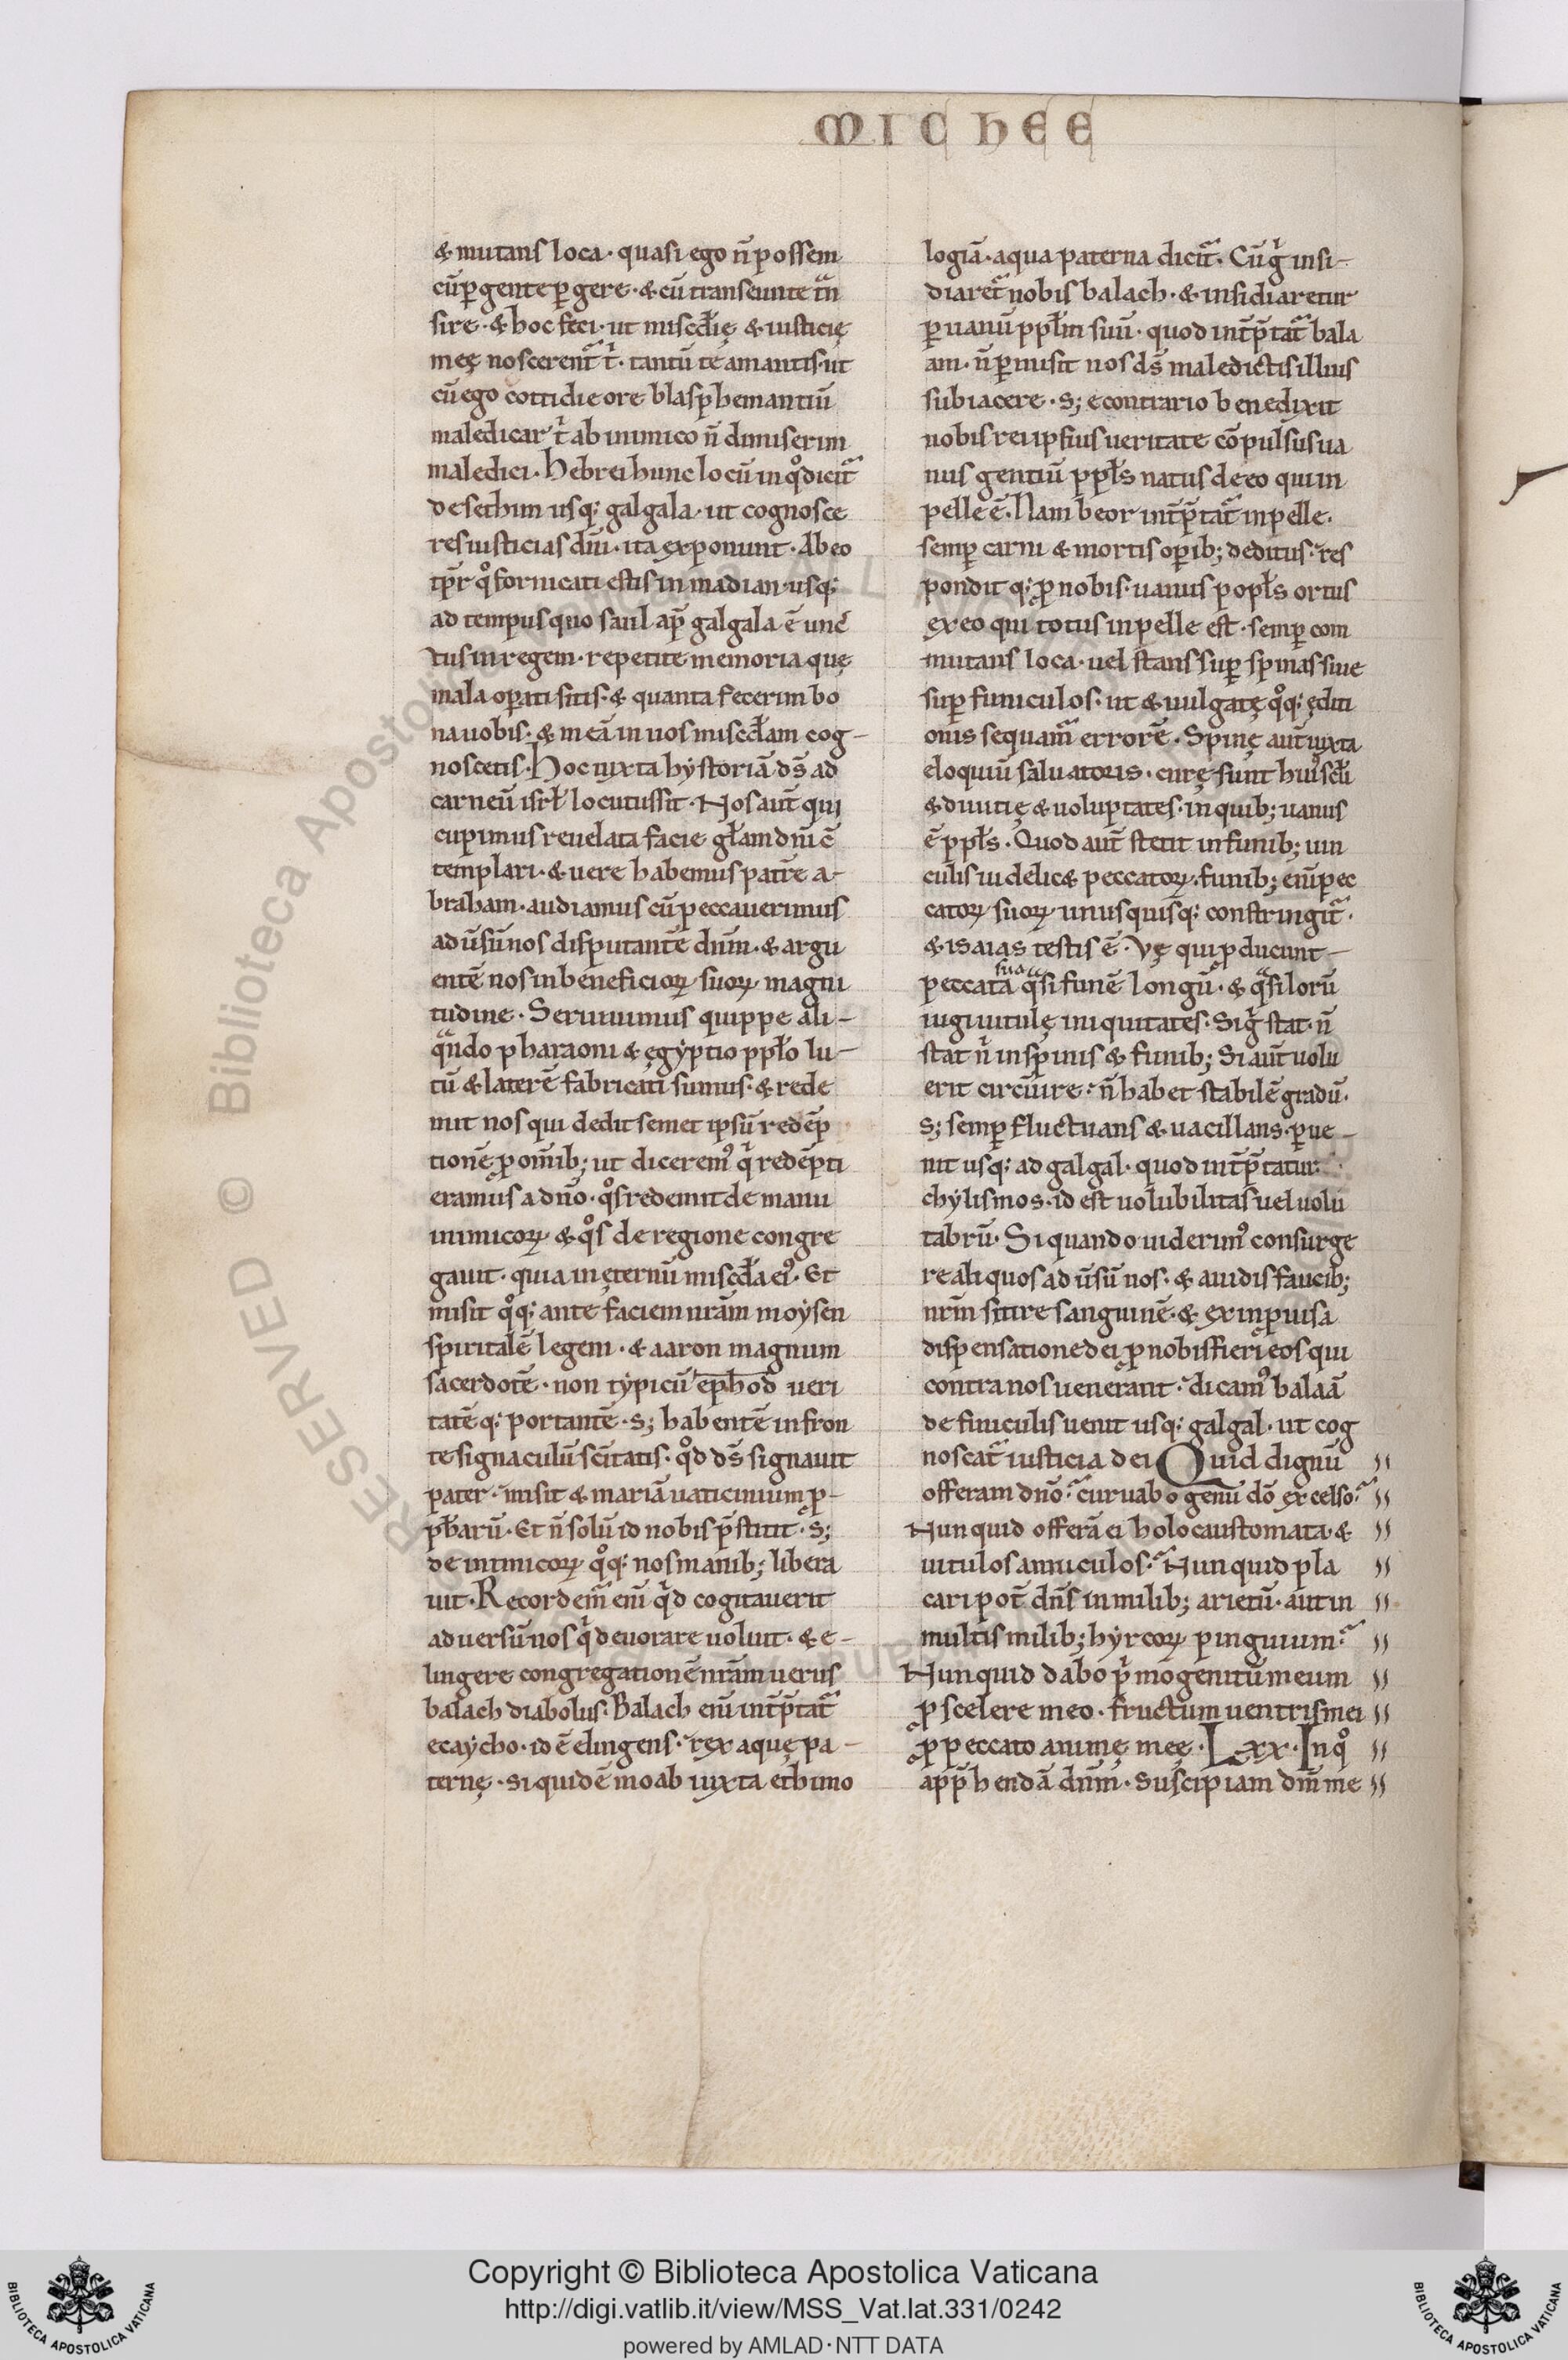 MICHEE
& mutans loca · quasi ego n̄ possem
cū ꝑgente ꝑgere · & cū transeunte t̄n
sire · & hoc feci · ut misc̄dię & iusticię
meę noscerent̃ t̾ · tantū te amantis · ut
cū ego cottidie ore blasphemantiū
maledicar t̾ ab inimico n̄ dimiserim
maledici · Hebrei hunc locū in qͦ dicit̃
de sethim usq; galgala · ut cognosce
res iusticias dn̄i · ita exponunt · Ab eo
tp̄r qͦ fornicati estis in madian · usq;
ad tempus quo saul ap̄ galgala ē unc
tus in regem · repetite memoria quę
mala oꝑati sitis · & quanta fecerim bo
na uobis · & meā in uos misc̄dam cog-
noscetis · Hoc iuxta hystoriā d̄s ad
carneū isrł locutus sit · Nos aut̄ qui
cupimus reuelata facie głam dn̄i c̄
templari · & uere habemus patrē a-
braham · audiamus cū peccauerimus
adūsū nos disputantē dn̄m · & argu
entē nos in beneficioꝝ suoꝝ magni
tudine · Seruiuimus quippe ali-
qᵃndo pharaoni & ęgyptio ppło lu-
tū & laterē fabricati sumus · & rede
mit nos qui dedit semet ipsū redēp
tionē ꝓ om̄ib; ut dicerem᾽ q̾ redēpti
eramus a dn̄o · qͦs redemit de manu
inimicoꝝ & qͦs de regione congre
gauit · quia in ęternū misc̄dia ei᾽ · Et
misit qͦq; ante faciem nr̄am moysen
spiritalē legem · & aaron magnum
sacerdotē · non typicū ephod ueri
tatēq; portantē · s; habentē in fron
te signaculū sc̄itatis · qͦd d̄s signauit
pater · misit & mariā uaticinium ꝓ-
phetarū · Et n̄ solū id nobis p̄stitit · s;
de inimicoꝝ qͦq; nos manib; libera
uit · Recordem̃ eni̅ q̾d cogitauerit
aduersū nos q̾ deuorare uoluit · & e-
lingere congregationē nr̄am uerus
balach diabolus · Balach eni̅ int̄p̄tat̃
ecaycho · id ē elingens · rex aquę pa-
ternę · siquidē moab iuxta ethimo
logiā · aqua paterna dicit̃ · Cū g̾ insi-
diaret̃ nobis balach · & insidiaretur
ꝑ uanū ppłm suū · quod int̄p̄tat̃ bala
am · n̄ ꝑmisit nos d̄s maledictis illius
subiacere · s; econtrario benedixit
nobis rei ipsius ueritate cōpulsus ua
nus gentiū ppłs natus de eo qui in
pelle ē · Nam beor int̄p̄tat̃ in pelle ·
semꝑ carni & mortis oꝑib; deditus · res
pondit q; ꝓ nobis · uanus popłs ortus
ex eo qui totus in pelle est · semꝑ com
mutans loca · uel stans suꝑ spinas siue
suꝑ funiculos · ut & uulgatę qͦq; ęditi
onis sequam̃ errorē · Spinę aut̄ iuxta
eloquiū saluatoris · curę sunt hui᾽ scłi
& diuitię & uoluptates · in quib; uanus
ē ppłs · Quod aut̄ stetit in funib; uin
culis uidelic& peccatoꝝ · funib; eni̅ pec
catoꝝ suoꝝ unusquisq; constringit̃ ·
& isaias testis ē · Vę qui ꝓducunt-
sua
peccata qᵃsi funē longū · & qᵃsi lorū
iugi uitulę iniquitates · Si g̾ stat · n̄
stat n̾ in spinis & funib; Si aut̄ uolu
erit circūire · n̄ habet stabilē gradū ·
s; semꝑ fluctuans & uacillans · ꝑue-
nit usq; ad galgal · quod int̄p̄tatur ·
chylismos · id est uolubilitas uel uolu
tabrū · Si quando uiderim᾽ consurge
re aliquos adūsū nos · & auidis faucib;
nr̄m sitire sanguinē · & ex inꝓuisa
dispensatione dei ꝓ nobis fieri eos qui
contra nos uenerant · dicam᾽ balaā
de funiculis uenit usq; galgal · ut cog
noscat̃ iusticia dei Quid dignū
offeram dn̄o · curuabo genu dō excelso ·
Nunquid offerā ei holocaustomata · &
uitulos anniculos · Nunquid pla
cari pot̄ dn̄s in milib; arietū · aut in
multis milib; hyrcoꝝ pinguium ·
Nunquid dabo p̾mogenitū meum
ꝓ scelere meo · fructum uentris mei
ꝓ peccato animę meę · Lxx · In qͦ
app̄hendā dn̄m · suscipiam dm̄ me
Copyright © Biblioteca Apostolica Vaticana
http://digi.vatlib.it/view/MSS_Vat.lat.331/0242
powered by AMLAD·NTT DATA